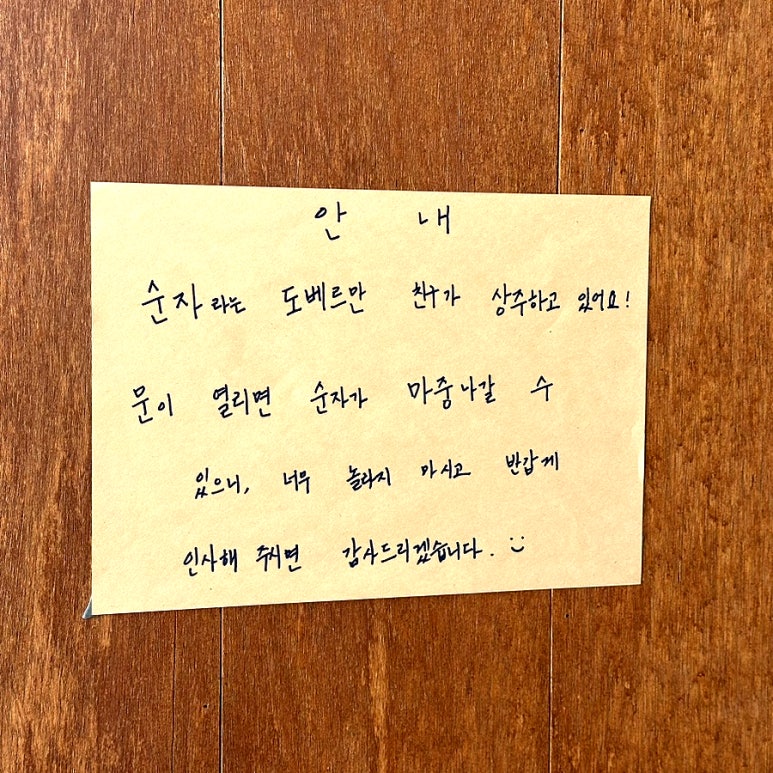 안 내
순자라는 도베르만 친구가 상주하고 있어요!
문이 열리면 순자가 마중나갈 수
있으니, 너무 놀라지 마시고 반갑게
인사해 주시면 감사드리겠습니다. :)